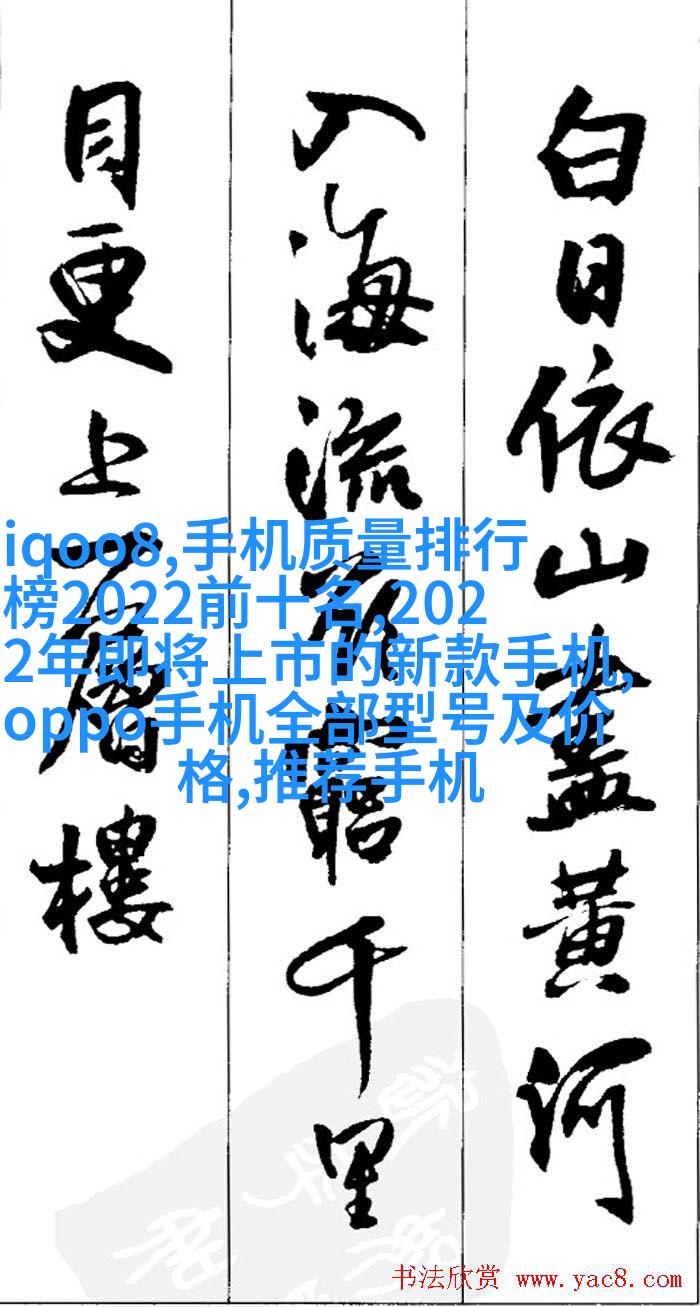 白日依山盡黄河
入海流欲窮千里
目更上一層樓
iqoo8,手机质量排行
榜2022前十名,202
2年即将上市的新款手机,
oppo手机全部型号及价
格,推荐手机
书法欣赏 www.yac8.com